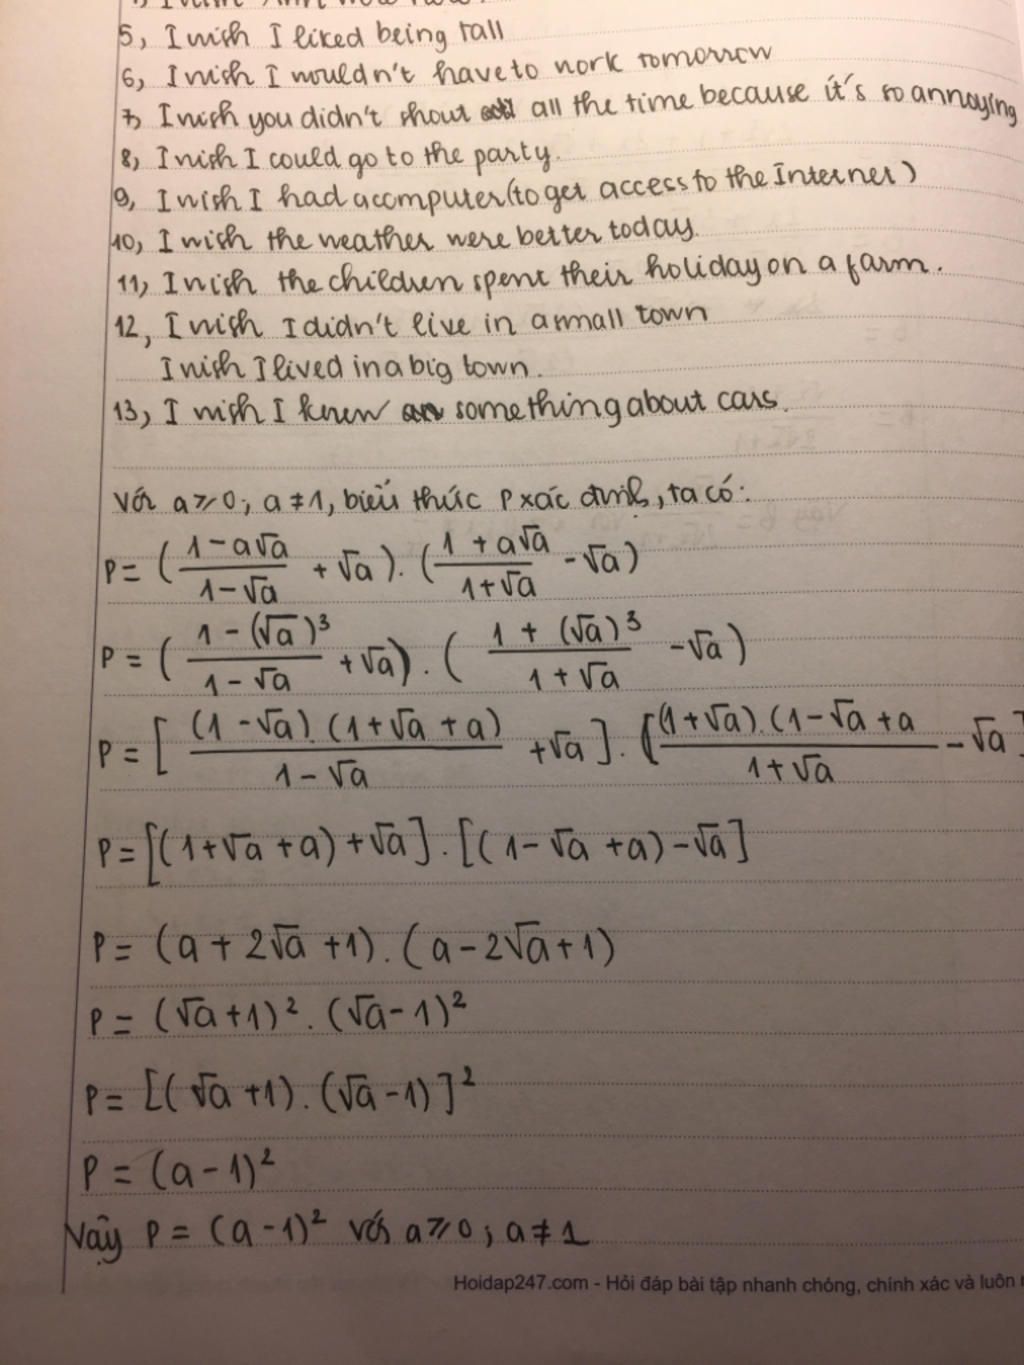 5, I wish I liked being tall
6, I wish I wouldn't have to work tomorrow
7, I wish you didn't shout all the time because it's so annoying
8, I wish I could go to the party.
9, I wish I had a computer (to get access to the Internet)
10, I wish the weather were better today.
11, I wish the children spent their holiday on a farm.
12, I wish I didn't live in a small town
I wish I lived in a big town.
13, I wish I knew something about cars.
Với a ⩾ 0; a ≠ 1, biểu thức P xác định, ta có:
P = ( (1 - a√a)/(1 - √a) + √a ) . ( (1 + a√a)/(1 + √a) - √a )
P = ( (1 - (√a)³)/(1 - √a) + √a ) . ( (1 + (√a)³)/(1 + √a) - √a )
P = [ (1 - √a).(1 + √a + a)/(1 - √a) + √a ] . [ (1 + √a).(1 - √a + a/(1 + √a) - √a ]
P = [(1 + √a + a) + √a] . [(1 - √a + a) - √a]
P = (a + 2√a + 1) . (a - 2√a + 1)
P = (√a + 1)² . (√a - 1)²
P = [(√a + 1) . (√a - 1)]²
P = (a - 1)²
Vậy P = (a - 1)² với a ⩾ 0; a ≠ 1
Hoidap247.com - Hỏi đáp bài tập nhanh chóng, chính xác và luôn